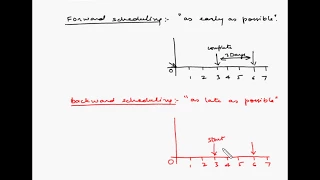 Forward scheduling:- "as early as possible".
complete
3 Days
0 1 2 3 4 5 6 7
Backward scheduling:- "as late as possible"
start
0 1 2 3 4 5 6 7